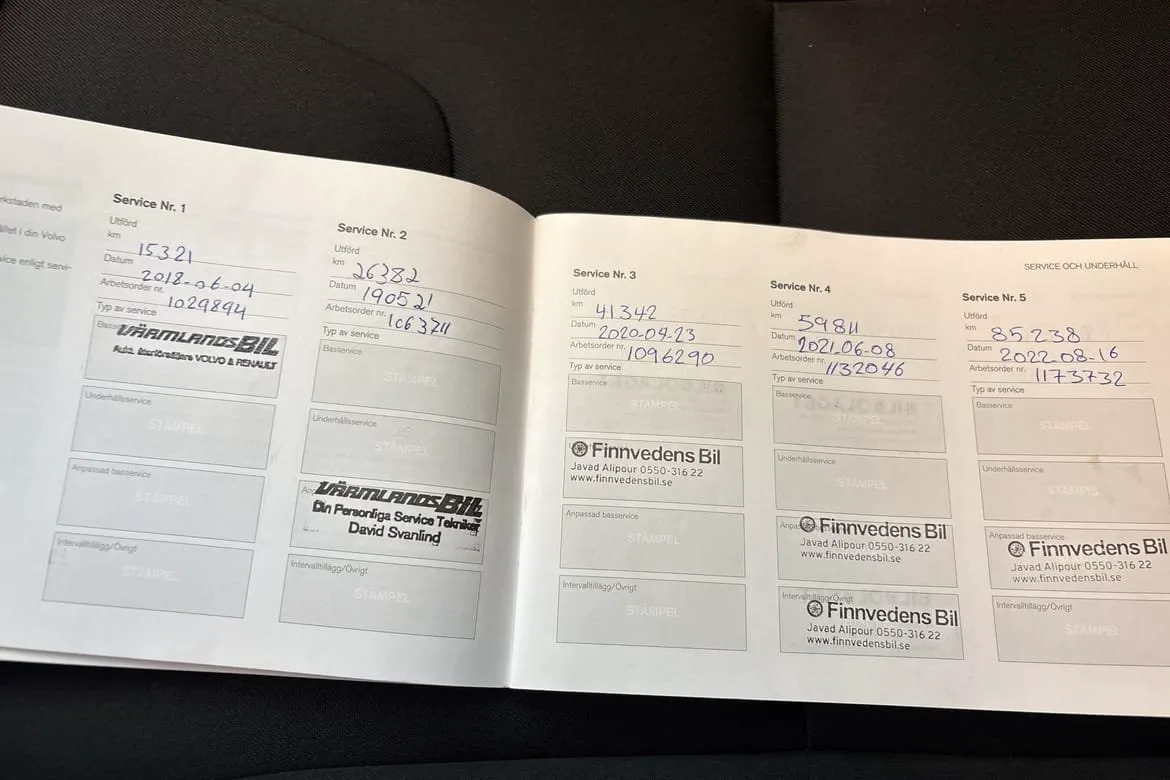 rkstaden med
ållet i din Volvo
vice enligt servi-
Service Nr. 1
Utförd
km 15321
Datum 2018-06-04
Arbetsorder nr. 1029894
Typ av service
VÄRMLANDSBIL
Auto. återförsäljare VOLVO & RENAULT
Underhållsservice
STÄMPEL
Anpassad basservice
STÄMPEL
Intervalltillägg/Övrigt
STÄMPEL
Service Nr. 2
Utförd
km 26382
Datum 190521
Arbetsorder nr. 1063211
Typ av service
Basservice
STÄMPEL
Underhållsservice
STÄMPEL
VÄRMLANDSBIL
Din Personliga Service Tekniker
David Svanlind
Intervalltillägg/Övrigt
STÄMPEL
Service Nr. 3
Utförd
km 41342
Datum 2020-04-23
Arbetsorder nr. 1096290
Typ av service
Basservice
STÄMPEL
Finnvedens Bil
Javad Alipour 0550-316 22
www.finnvedensbil.se
Anpassad basservice
STÄMPEL
Intervalltillägg/Övrigt
STÄMPEL
Service Nr. 4
Utförd
km 59811
Datum 2021-06-08
Arbetsorder nr. 1132046
Typ av service
Basservice
STÄMPEL
Underhållsservice
STÄMPEL
Finnvedens Bil
Javad Alipour 0550-316 22
www.finnvedensbil.se
Intervalltillägg/Övrigt
Finnvedens Bil
Javad Alipour 0550-316 22
www.finnvedensbil.se
SERVICE OCH UNDERHÅLL
Service Nr. 5
Utförd
km 85238
Datum 2022-08-16
Arbetsorder nr. 1173732
Typ av service
Basservice
STÄMPEL
Underhållsservice
STÄMPEL
Anpassad basservice
Finnvedens Bil
Javad Alipour 0550-316 22
www.finnvedensbil.se
Intervalltillägg/Övrigt
STÄMPEL